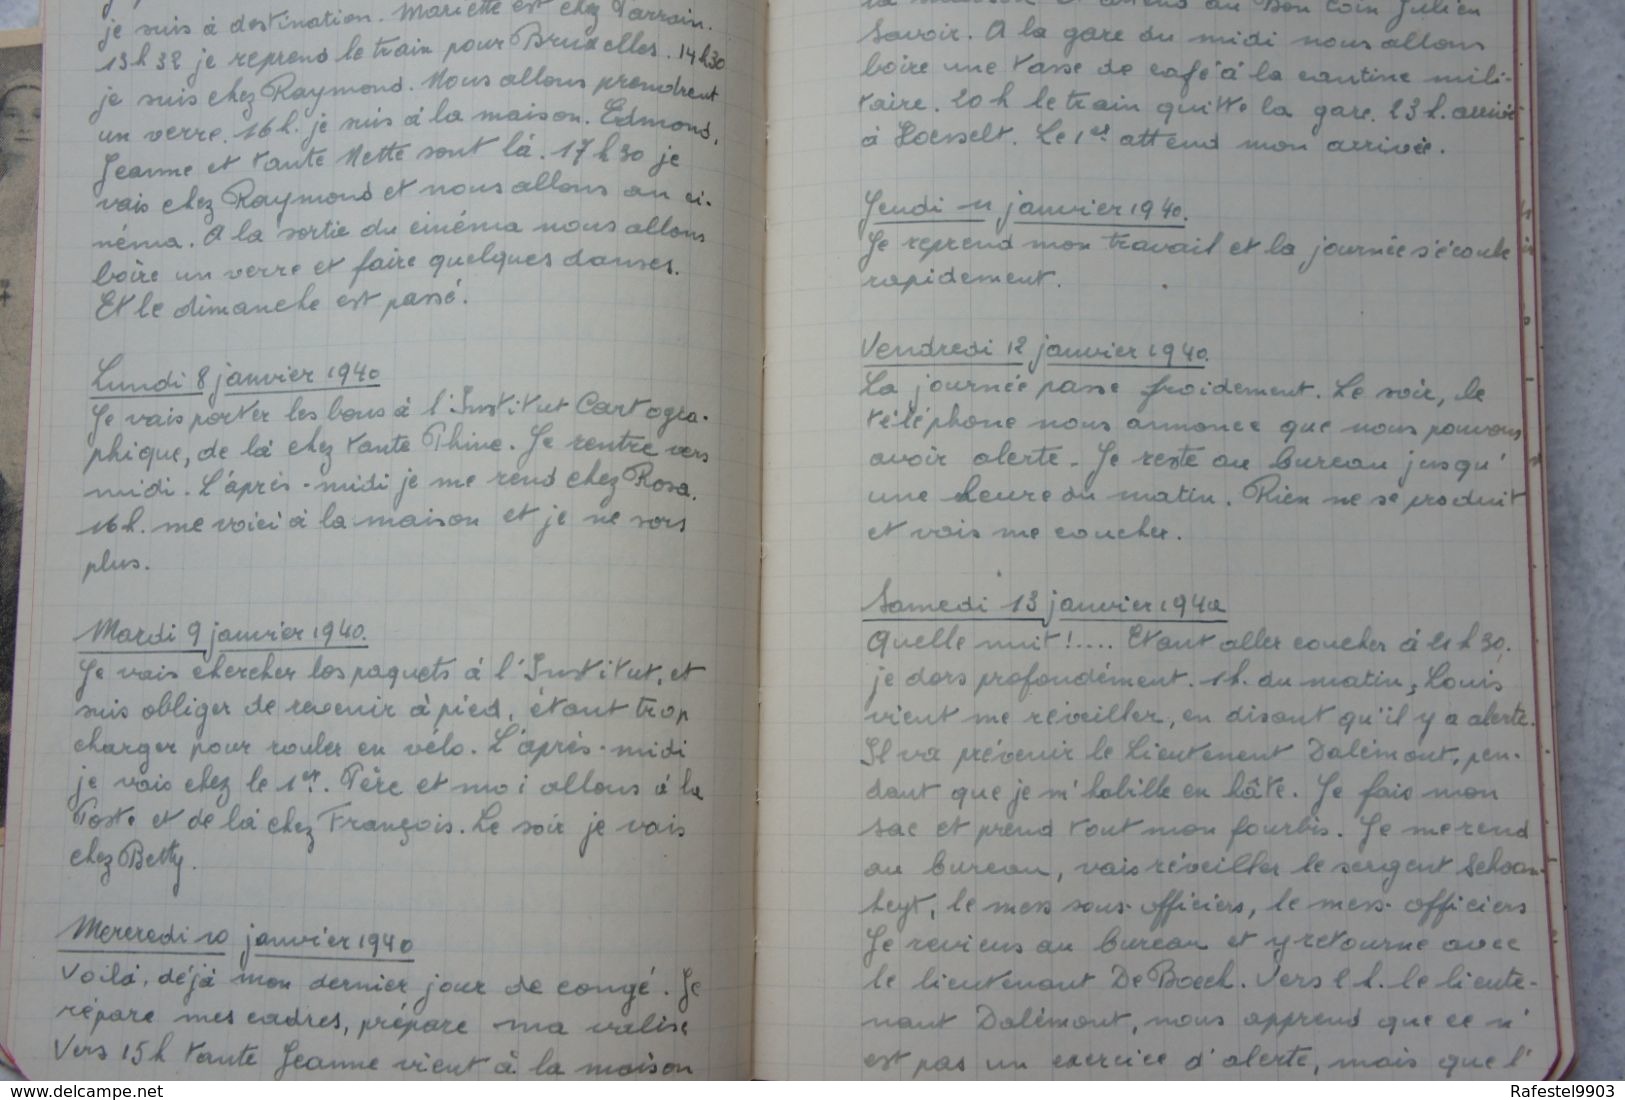 je suis à destination. Mariette est chez Parrain.
13h 32 je reprend le train pour Bruxelles. 14h30
je suis chez Raymond. Nous allons prendrent
un verre. 16h. je suis à la maison. Edmond,
Jeanne et tante Nette sont là. 17h30 je
vais chez Raymond et nous allons au ci-
néma. A la sortie du cinéma nous allons
boire un verre et faire quelques danses.
Et le dimanche est passé.
Lundi 8 janvier 1940
Je vais porter les bons à l'Institut Cartogra-
phique, de là chez tante Phine. Je rentre vers
midi. L'après-midi je me rend chez Rosa.
16h. me voici à la maison et je ne sors
plus.
Mardi 9 janvier 1940.
Je vais chercher les paquets à l'Institut, et
suis obliger de revenir à pied, étant trop
charger pour rouler en vélo. L'après-midi
je vais chez le 1er. Père et moi allons à la
Poste et de là chez François. Le soir je vais
chez Betty.
Mercredi 10 janvier 1940
Voilà, déjà mon dernier jour de congé. Je
répare mes cadres, prépare ma valise
Vers 15h tante Jeanne vient à la maison
la maison et attend au Bon Coin Julien
Savoir. A la gare du midi nous allons
boire une tasse de café à la cantine mili-
taire. 20h le train quitte la gare. 23h. arrivé
à Hoesselt. Le 1er attend mon arrivée.
Jeudi 11 janvier 1940.
Je reprend mon travail et la journée s'écoule
rapidement.
Vendredi 12 janvier 1940.
La journée passe froidement. Le soir, le
téléphone nous annonce que nous pouvons
avoir alerte. Je reste au bureau jusqu'
une heure du matin. Rien ne se produit
et vais me coucher.
Samedi 13 janvier 1940
Quelle nuit!.... Etant aller coucher à 21h30,
je dors profondément. 1h. du matin, Louis
vient me réveiller, en disant qu'il y a alerte.
Il va prévenir le Lieutenent Dalémont, pen-
dant que je m'habille en hâte. Je fais mon
sac et prend tout mon fourbis. Je me rend
au bureau, vais réveiller le sergent Schoon-
heyt, le mess sous-officiers, le mess-officiers
Je reviens au bureau et y retourne avec
le lieutenant De Boeck. Vers 2 h. le lieute-
nant Dalémont, nous apprend que ce n'
est pas un exercice d'alerte, mais que l'
www.delcampe.net
Rafestel9903